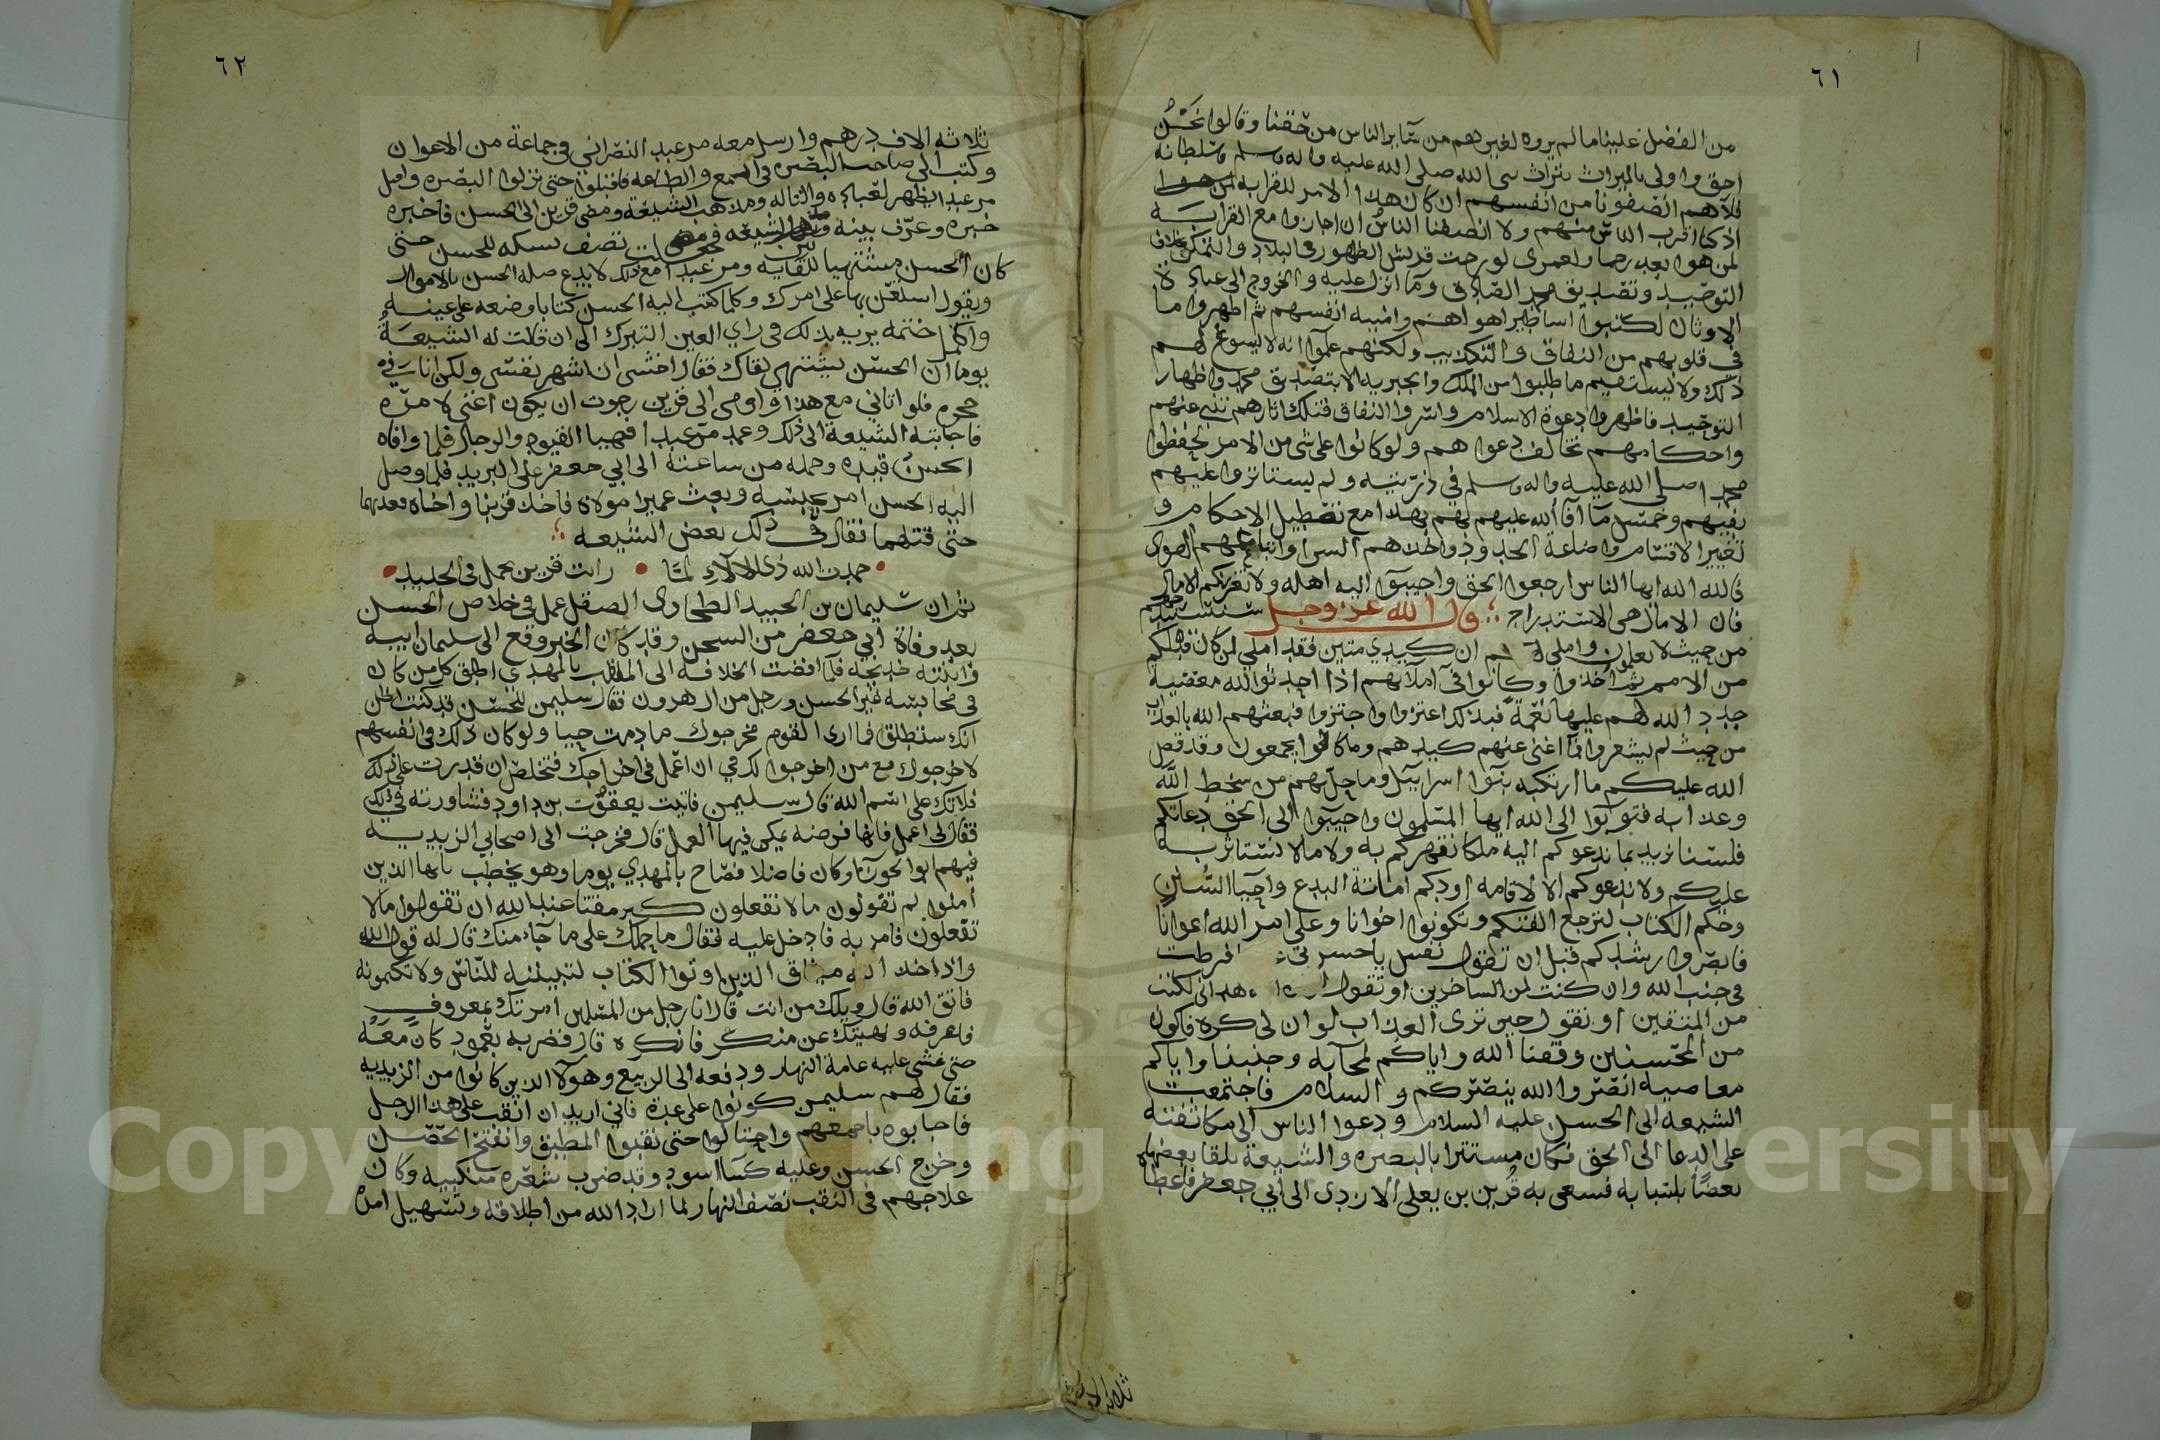 ٦١
من الفضل علينا ما لم يروه لغيرهم من ساير الناس من حقنا وقالوا نحن
احق واولى بالميراث تراث نبي الله صلى الله عليه واله وسلم وسلطانه
فلا هم انصفونا من انفسهم ان كان هذا الامر للقرابة
اذ كنا اقرب الناس منهم ولا انصفنا الناس ان اجازوا مع القرابة
لمن هو ابعد رحما ولعمري لو رجت قريش الظهور في البلاد والتمكن بخلاف
التوحيد وتصديق محمد الصادق وما انزل عليه والخروج الى عبادة
الاوثان لكتبوا اساطير اهواهم وامنية انفسهم ثم اظهروا ما
في قلوبهم من النفاق والتكذيب ولكنهم علموا انه لا يسوغ لهم
ذلك ولا يستقيم ما طلبوا من الملك والجبرية الا بتصديق محمد واظهار
التوحيد فاظهروا دعوة الاسلام واسروا النفاق فتلك اثارهم تنبي عنهم
واحكامهم تخالف دعواهم ولو كانوا على شي من الامر لحفظوا
محمدا صلى الله عليه واله وسلم في ذريته ولم يستاثروا عليهم
بفيهم وخمس ما آفا الله عليهم لهم بهذا مع تعطيل الاحكام و
تغيير الاقسام واضاعة الحدود واخذهم الرشا واتباعهم الهوى
فالله الله ايها الناس ارجعوا الحق واجيبوا اليه اهله ولا تغرنكم الامال
فان الامال هي الاستدراج قال الله عز وجل سنستدرجهم
من حيث لا يعلمون واملي لهم ان كيدي متين فقد املي لمن كان قبلكم
من الامم ثم اخذوا وكانوا في آمالهم اذا احدثوا لله معصية
جدد الله لهم عليها نعمة فبذلك اغتروا واجتروا فبعثهم الله بالعذاب
من حيث لم يشعروا فما اغنى عنهم كيدهم وما كانوا يجمعون وقد قص
الله عليكم ما ارتكبه بنوا اسراييل وما حل بهم من سخط الله
وعذابه فتوبوا الى الله ايها المسلمون واجيبوا الى الحق دعاتكم
فلسنا نريد بما ندعوكم اليه ملكا نقهركم به ولا مالا نستاثر به
عليكم ولا ندعوكم الا لاقامة اودكم اماتة البدع واحيا السنن
وحكم الكتاب لترجع الفتكم وتكونوا اخوانا وعلى امر الله اعوانا
فابصروا رشدكم قبل ان تقول نفس يا حسرتي فرطت
في جنب الله وان كنت لمن الساخرين او تقول هداني لكنت
من المتقين او تقول حين ترى العذاب لو ان لي كرة فاكون
من المحسنين وفقنا الله واياكم لمحآبه وجنبنا واياكم
معاصيه انصروا الله ينصركم والسلام فاجتمعت
الشيعه الى الحسن عليه السلام ودعوا الناس الى مكاتفته
على الدعا الى الحق فكان مستترا بالبصره والشيعة يلقا بعضها
بعضا باسبابه فسعى به قرين بن يعلى الازدي الى ابي جعفر فاعطاه
ثلاثه الاف درهم
٦٢
ثلاثه الاف درهم وارسل معه مرعبد النصراني في جماعة من الاعوان
وكتب الى صاحب البصره في السمع والطاعه فاقبلوا حتى نزلوا البصره واقبل
مرعبدا يظهر العباده والتاله ومذهب الشيعة ومضى قرين الى الحسن فاخبره
خبره وعرف بينه وبين الشيعه نصف نسكه للحسن حتى
كان الحسن مشتهيا للقايه ومرعبدا مع ذلك لا يدع صلة الحسن بالاموال
ويقول استعن بها على امرك وكلما كتب اليه الحسن كتابا وضعه على عينيه
واكل ختمه يريد بذلك في راي العين التبرك الى ان قالت له الشيعة
يوما ان الحسن يشتهي لقاك فقال اخشى ان اشهر نفسي ولكن انا في
حجره فلو اتاني مع هذا واومى الى قرين رجوت ان يكون اغنى لامره
فاجابته الشيعة الى ذلك وعمد مرعبدا فهيا القيود والرجال فلما وافاه
الحسن قيده وحمله من ساعته الى ابي جعفر على البريد فلما وصل
اليه الحسن امر بحبسه وبعث عميرا مولاه فاخذ قرينا واخاه فعذبهما
حتى قتلهما فقال في ذلك بعض الشيعه
حمدت الله ذي الالاء لما رايت قرين يحمل في الحديد
ثم ان سليمان بن الجنيد الطحاوي الصيقل عمل في خلاص الحسن
بعد وفاة ابي جعفر من السجن وقد كان الخبر وقع الى سليمان ابيه
وابنته خديجه فلما افضت الخلافه الى الملقب بالمهدي اطلق كل من كان
في محابسه غير الحسن ورجل من ال هرون فقال سليمن للحسن قد كنت اظن
انك ستطلق فما ارى القوم مخرجوك ما دمت حيا ولو كان ذلك في انفسهم
لاخرجوك مع من اخرجوا لك في ان اعمل في اخراجك فتخلص ان قدرت على ذلك
فلاتك على اسم الله قال سليمن فاتيت يعقوب بن داود فشاورته في ذلك
فقال لي اعمل فانها فرصة يمكن فيها العمل قال فخرجت الى اصحابي الزيدية
فيهم ابوا الحورا وكان فاضلا فصاح بالمهدي يوما وهو يخطب يا ايها الذين
امنوا لم تقولون ما لا تفعلون كبر مقتا عند الله ان تقولوا ما لا
تفعلون فامر به فادخل عليه فقال ما حملك على ما جاء منك قال له قول الله
واذ اخذ الله ميثاق الذين اوتوا الكتاب لتبيننه للناس ولا تكتمونه
فاتق الله قال ويلك من انت قال انا رجل من المسلمين امرتك بمعروف
فاعرفه ونهيتك عن منكر فانكره قال فضربه بعمود كان معه
حتى غشي عليه عامة النهار ودفعه الى الربيع وهولآ الذين كانوا من الزيدية
فقال لهم سليمن كونوا على عدة فاني اريد ان انقب على هذا الرجل
فاجابوه باجمعهم واحتالوا حتى نقبوا المطبق وانفتح الحصن
وخرج الحسن وعليه كساء اسود وقد ضرب شعره منكبيه وكان
علاجهم في النقب نصف النهار لما اراد الله من اطلاقه وتسهيل امره
Copyright © King Saud University
1957